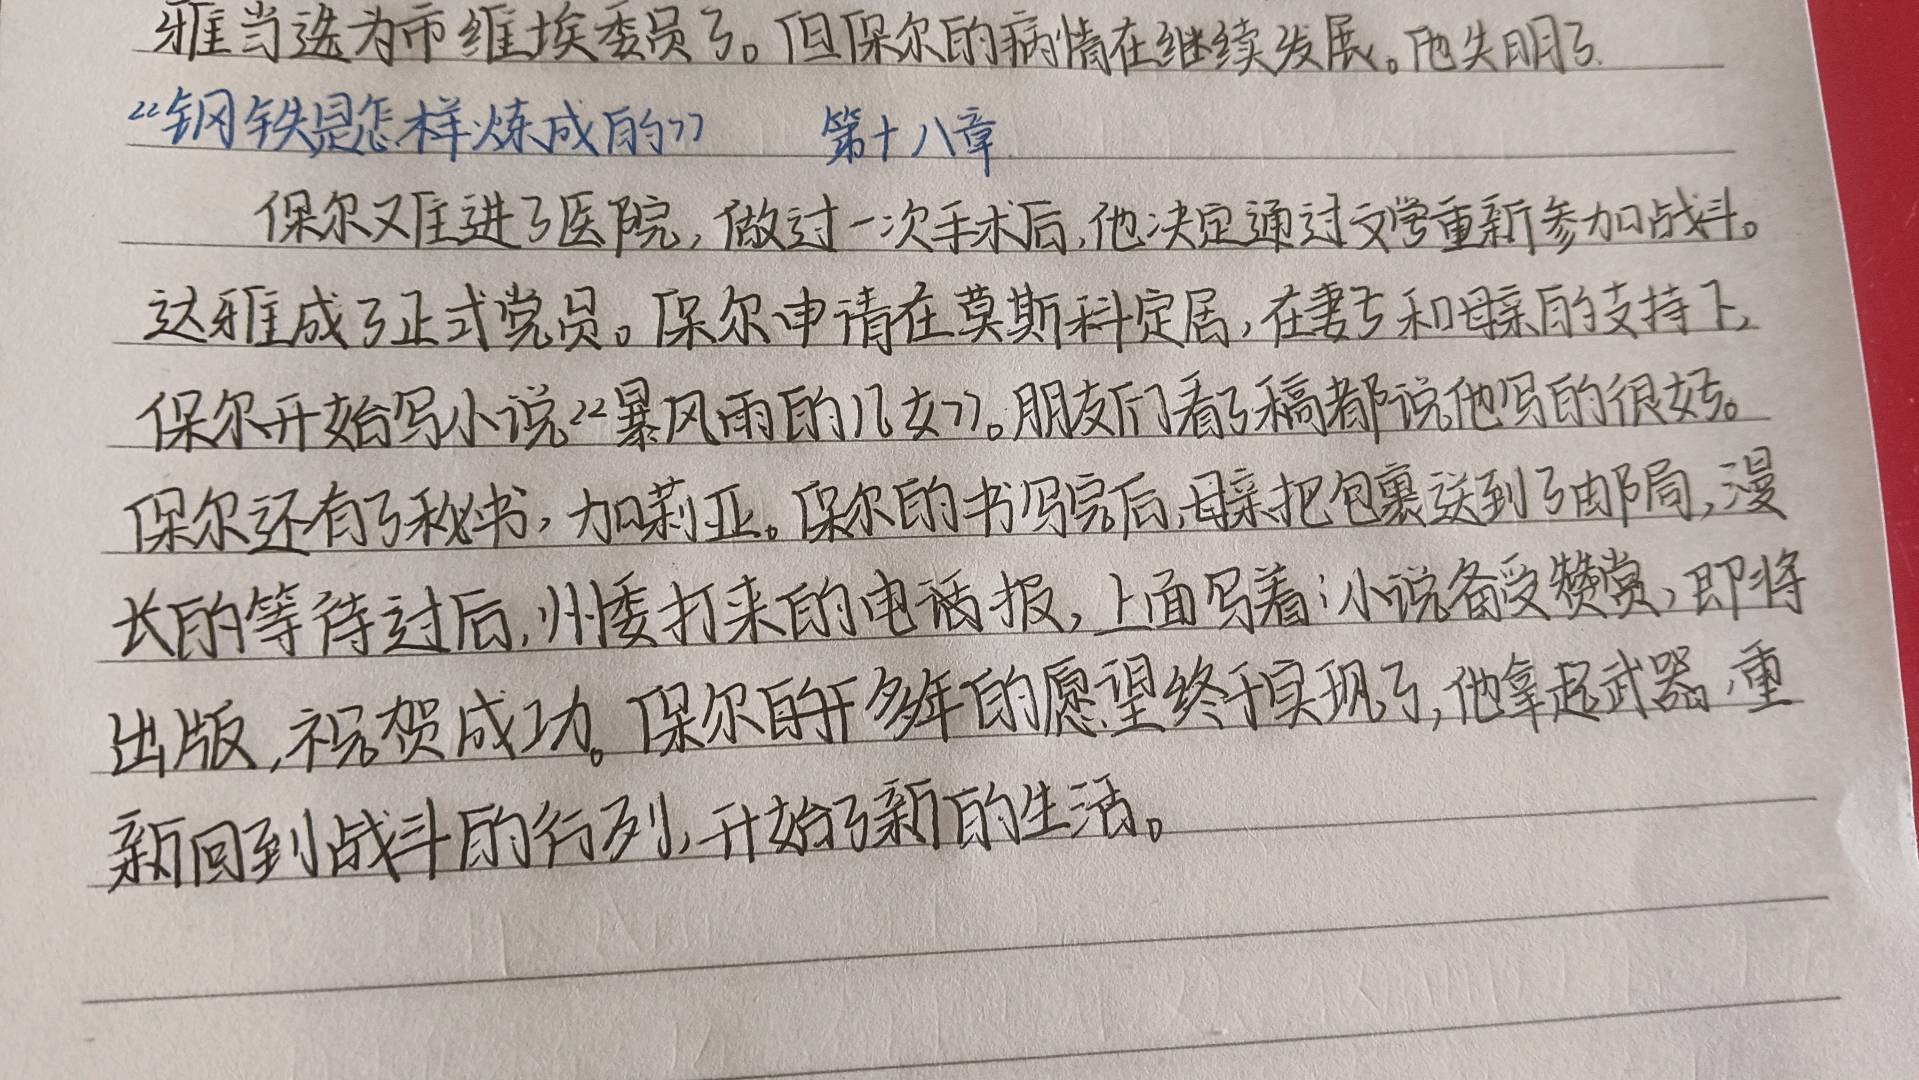 雅当选为市维埃委员了。但保尔的病情在继续发展。他失明了.
“钢铁是怎样炼成的” 第十八章
保尔又住进了医院,做过一次手术后,他决定通过文学重新参加战斗。
达雅成了正式党员。保尔申请在莫斯科定居,在妻子和母亲的支持下,
保尔开始写小说“暴风雨的儿女”。朋友们看了稿都说他写的很好。
保尔还有了秘书,加莉亚。保尔的书写完后,母亲把包裹送到了邮局,漫
长的等待过后,州委打来的电话报,上面写着:小说备受赞赏,即将
出版,祝贺成功。保尔的多年的愿望终于实现了,他拿起武器,重
新回到战斗的行列,开始了新的生活。